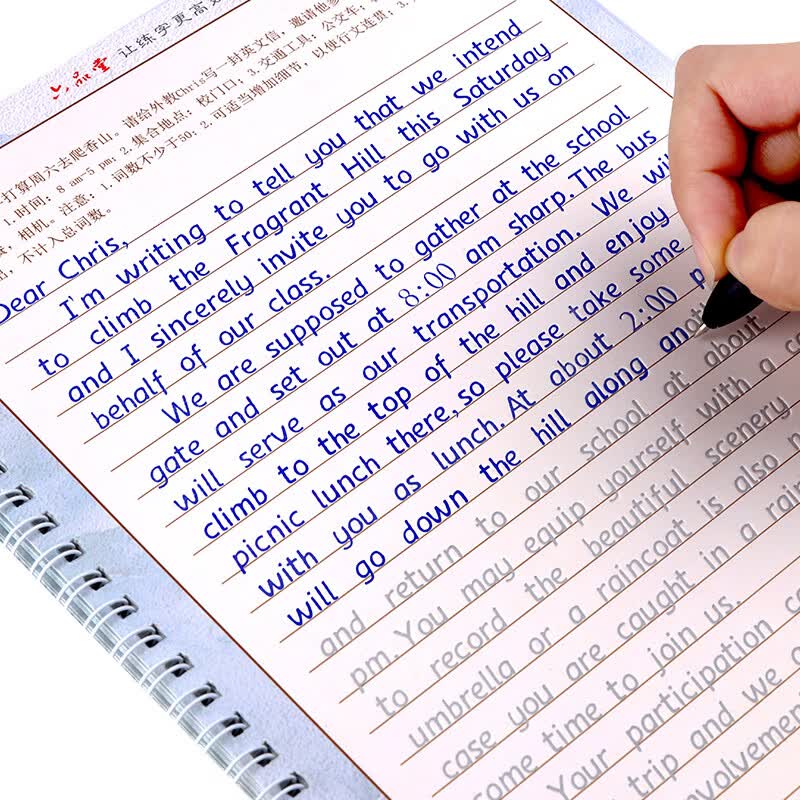 六品堂 让练字更高效
打算周六去爬香山。请给外教Chris写一封英文信，邀请他参
1.时间：8 am-5 pm；2.集合地点：校门口；3.交通工具：公交车；
相机。注意：1.词数不少于50；2.可适当增加细节，以使行文连贯；3.
不计入总词数。
Dear Chris,
I'm writing to tell you that we intend
to climb the Fragrant Hill this Saturday
and I sincerely invite you to go with us on
behalf of our class.
We are supposed to gather at the school
gate and set out at 8:00 am sharp. The bus
will serve as our transportation. We will
climb to the top of the hill and enjoy
picnic lunch there, so please take some
with you as lunch. At about 2:00 p
will go down the hill along another
and return to our school at about
pm. You may equip yourself with a ca
to record the beautiful scenery
umbrella or a raincoat is also
case you are caught in a rain
some time to join us.
Your participation
trip and we